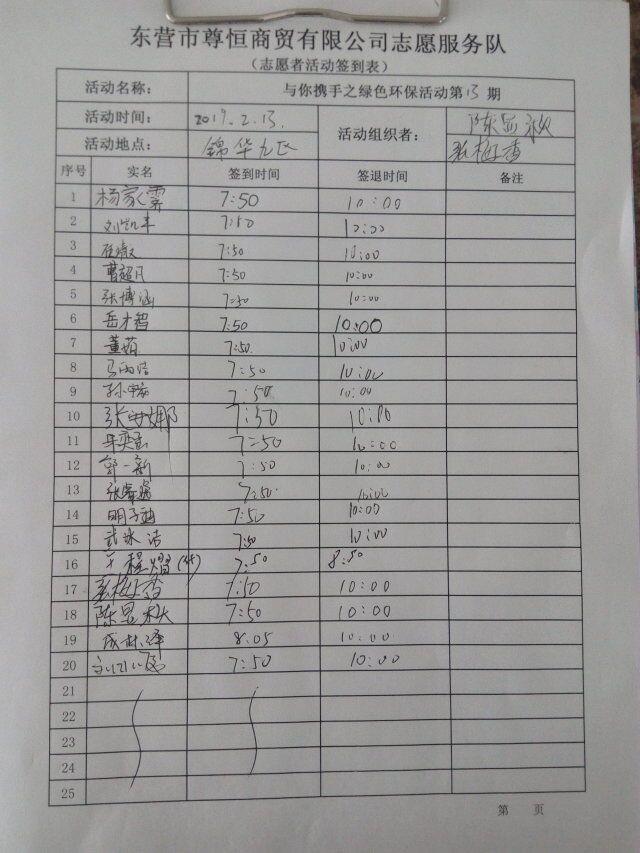 东营市尊恒商贸有限公司志愿服务队
（志愿者活动签到表）
活动名称： 与你携手之绿色环保活动第13期
活动时间： 2017.2.13. 活动组织者： 陈显秋
活动地点： 锦华九区
序号 实名 签到时间 签退时间 备注
1 杨家霖 7:50 10:00
2 7:50 10:00
3 7:50 10:00
4 曹超凡 7:50 10:00
5 张博涵 7:50 10:00
6 岳才智 7:50 10:00
7 董萌 7:50 10:00
8 7:50 10:00
9 7:50 10:00
10 张安娜 7:50 10:00
11 7:50 10:00
12 7:50 10:00
13 7:50 10:00
14 明子迪 7:50 10:00
15 武咏洁 7:50 10:00
16 7:50 8:50
17 7:50 10:00
18 陈显秋 7:50 10:00
19 8.05 10:00
20 7:50 10:00
21
22
23
24
25
第 页